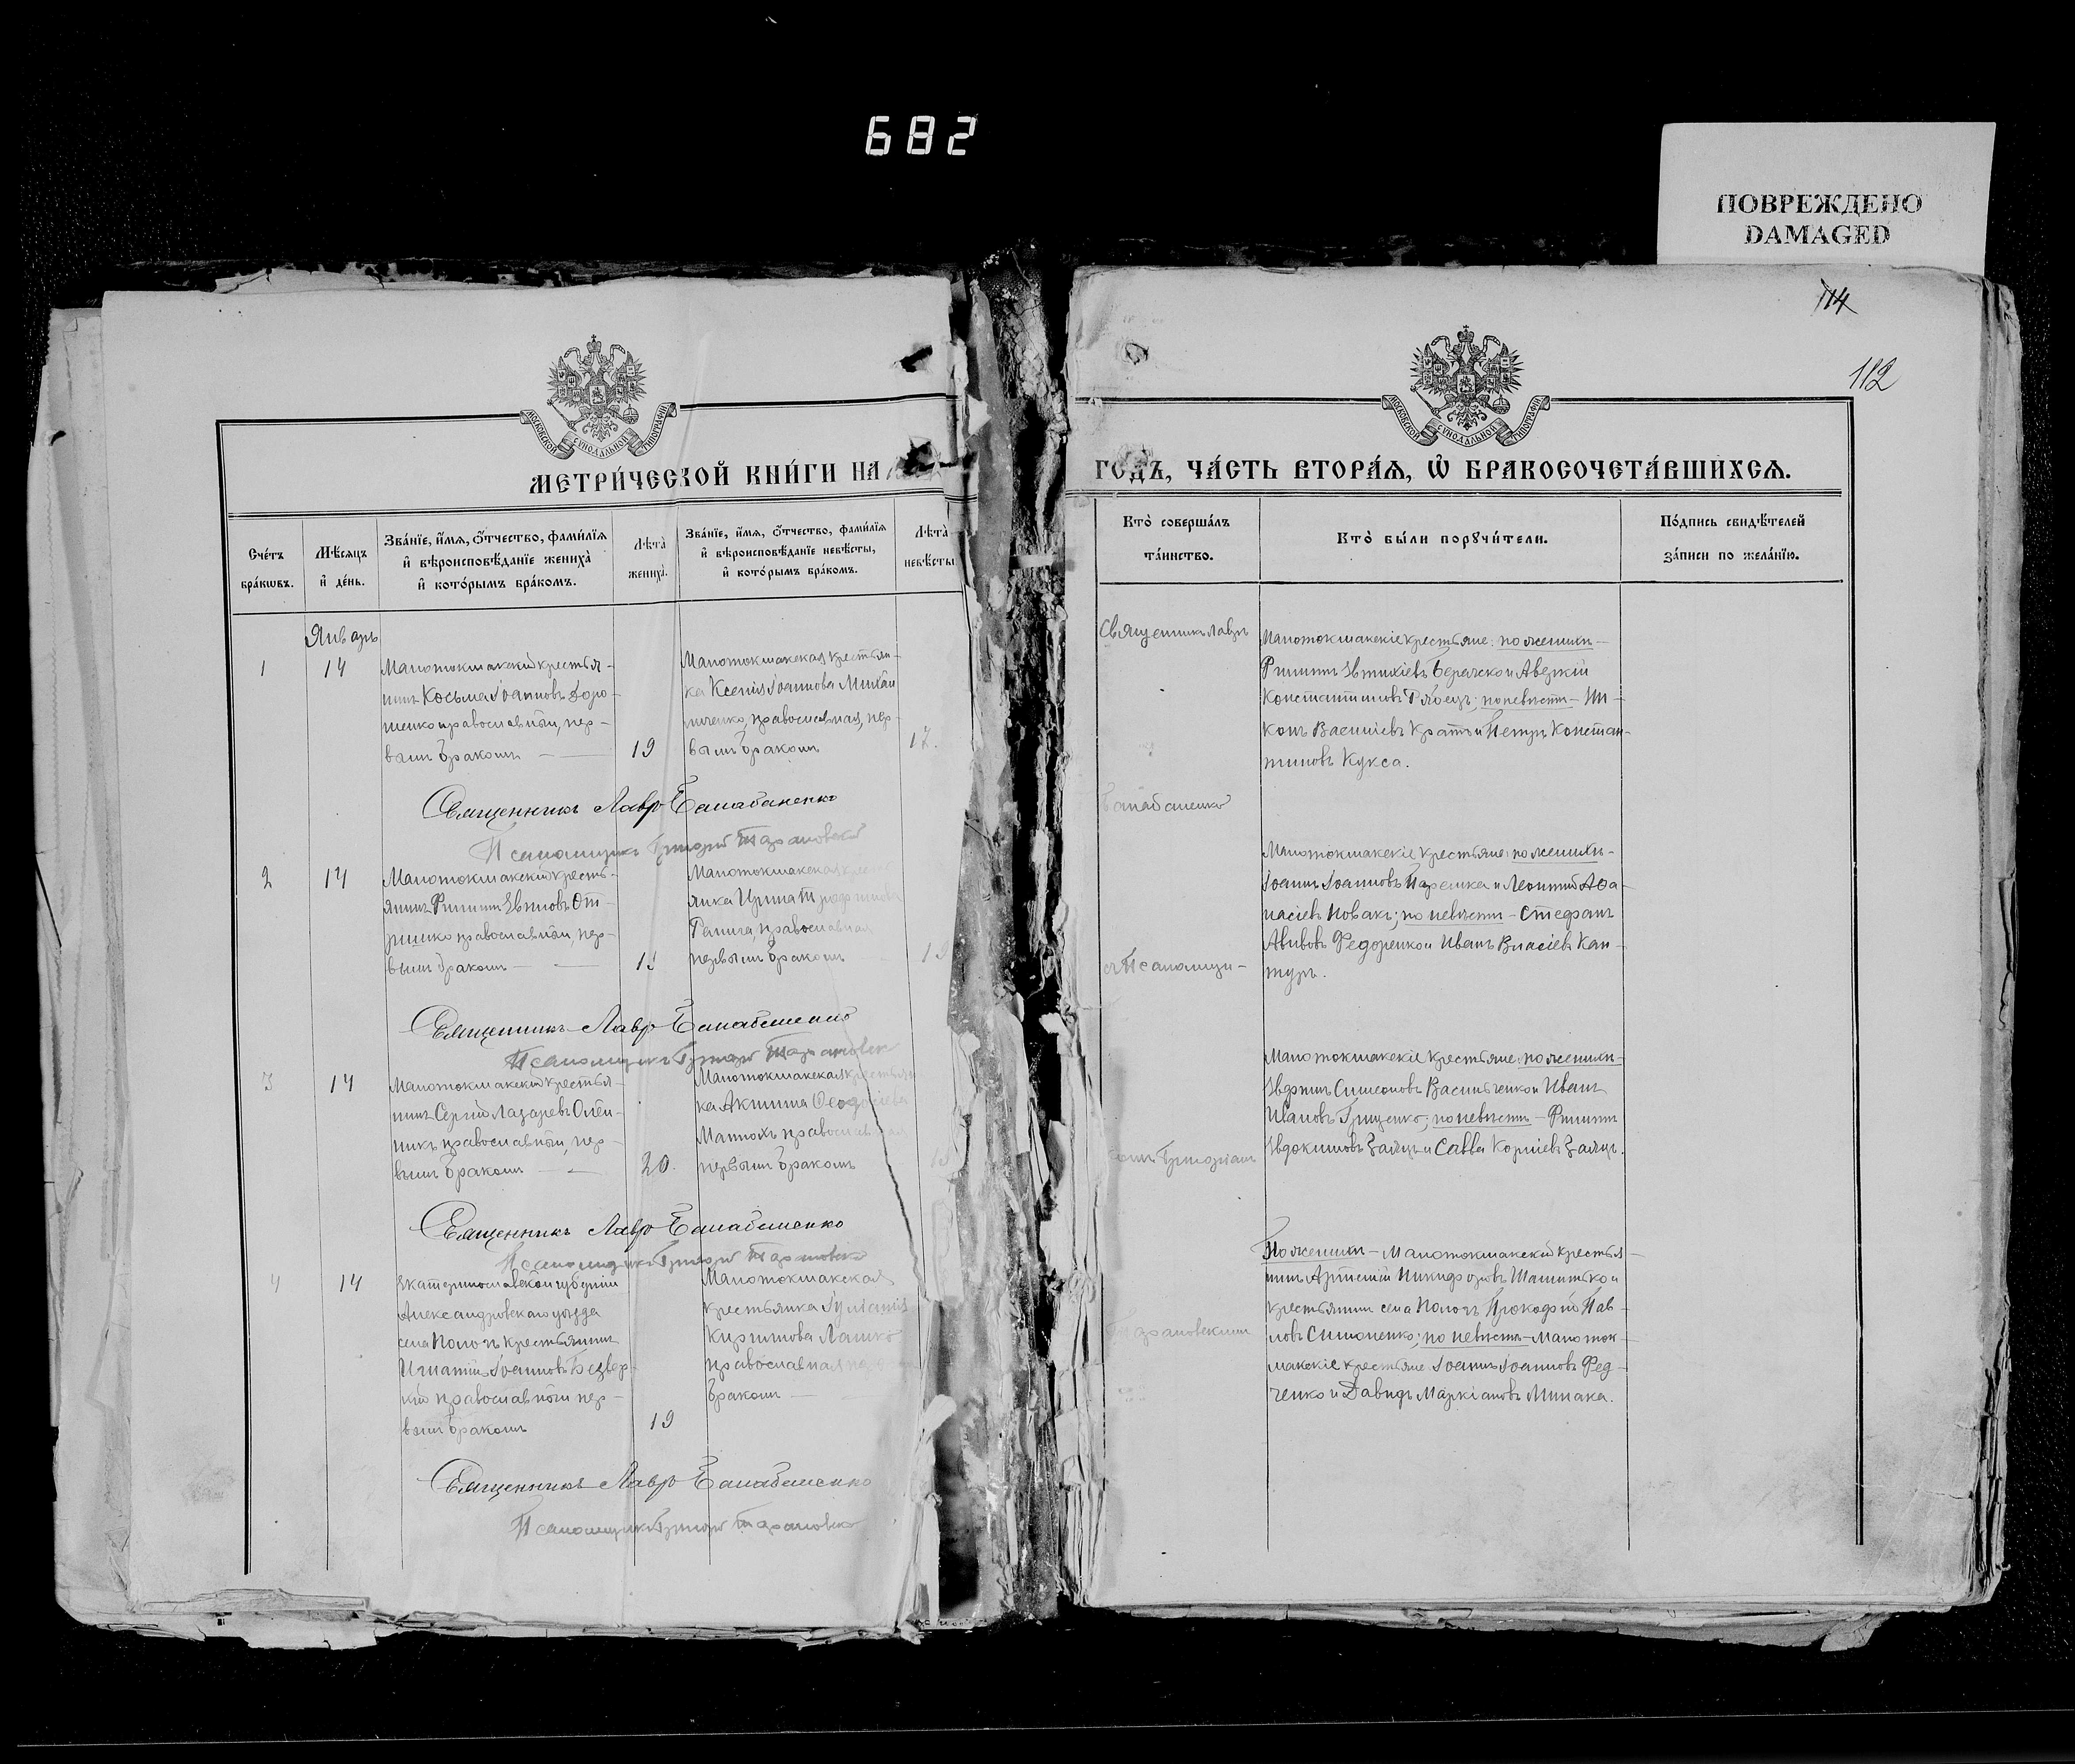 682
ПОВРЕЖДЕНО
DAMAGED
114
112
МОСКОВСКОЙ СУНОДАЛЬНОЙ ТИПОГРАФІИ
МОСКОВСКОЙ СУНОДАЛЬНОЙ ТИПОГРАФІИ
МЕТРИ́ЧЕСКОЙ КНИ́ГИ НА
ГОДЪ, ЧА́СТЬ ВТОРА́Я, Ѡ БРАКОСОЧЕТА́ВШИХСЯ.
Сче́тъ
бра́кωвъ.
Мѣ́сяцъ
и де́нь.
Зва́нїе, и́мя, ѻ́тчество, фами́лїя
и вѣроисповѣ́данїе жениха̀
и кото́рымъ бра́комъ.
Лѣта̀
жениха̀.
Зва́нїе, и́мя, ѻ́тчество, фами́лїя
и вѣроисповѣ́данїе невѣ́сты,
и кото́рымъ бра́комъ.
Лѣта̀
невѣ́сты
Кто̀ соверша́лъ
та́инство.
Кто̀ бы́ли порꙋчи́тели.
По́дпись свидѣ́телей
за́писи по жела́нїю.
Январь
1
14
Малотокмакскій крестья-
нинъ Косьма Іоанновъ Доро-
шенко православный, пер-
вымъ бракомъ
19
Малотокмакская крестьян-
ка Ксенія Іоаннова Михай
личенко, православная, пер-
вымъ бракомъ
17.
Священникъ Лавръ
Малотокмакскіе крестьяне: по женихѣ-
Филиппъ Евтихіевъ Бережко и Аверкій
Константиновъ Рябецъ; по невѣстѣ - Ни-
конъ Василіевъ Кратъ и Петръ Констан-
тиновъ Кукса.
Священникъ Лавръ Балабаненко
Псаломщикъ Григорій Тарановскій
Балабаненко
2
14
Малотокмакскій кресть-
янинъ Филиппъ
православный, пер-
вымъ бракомъ
Малотокмакская
янка Ирина
православная
первымъ бракомъ
съ Псаломщи-
Малотокмакскіе крестьяне: по женихѣ-
Іоаннъ Іоанновъ и Леонтій Аѳа-
насіевъ Новакъ; по невѣстѣ - Стефанъ
Федоренко и Иванъ Власіевъ Кан-
туръ.
Священникъ Лавръ Балабаненко
Псаломщикъ Григорій Тарановскій
3
14
Малотокмакскій крестья-
нинъ Сергій Лазаревъ Олей-
никъ православный, пер-
вымъ бракомъ
20.
Малотокмакская крестьян
ка Акилина Ѳеодосіева
православная
первымъ бракомъ
комъ Григоріемъ
Малотокмакскіе крестьяне: по женихѣ-
Симеоновъ Васильченко и Иванъ
Ивановъ Гриценко; по невѣстѣ - Филиппъ
Евдокимовъ Заяцъ и Савва Корніевъ Заяцъ.
Священникъ Лавръ Балабаненко
Псаломщикъ Григорій Тарановскій
4
14
Екатеринославской губерніи
Александровскаго уѣзда
села Пологъ крестьянинъ
Игнатій Іоанновъ Безвер-
хій православный пер-
вымъ бракомъ
19
Малотокмакская
крестьянка Іуліанія
Кириллова Ляшко
православная
бракомъ
Тарановскимъ
По женихѣ - Малотокмакскій крестья-
нинъ Никифоровъ и
крестьянинъ села Пологъ Прокофій Пав-
ловъ Симоненко; по невѣстѣ - Малоток-
макскіе крестьяне Іоаннъ Іоанновъ Фед-
ченко и Давидъ Маркіановъ Минака.
Священникъ Лавръ Балабаненко
Псаломщикъ Григорій Тарановскій